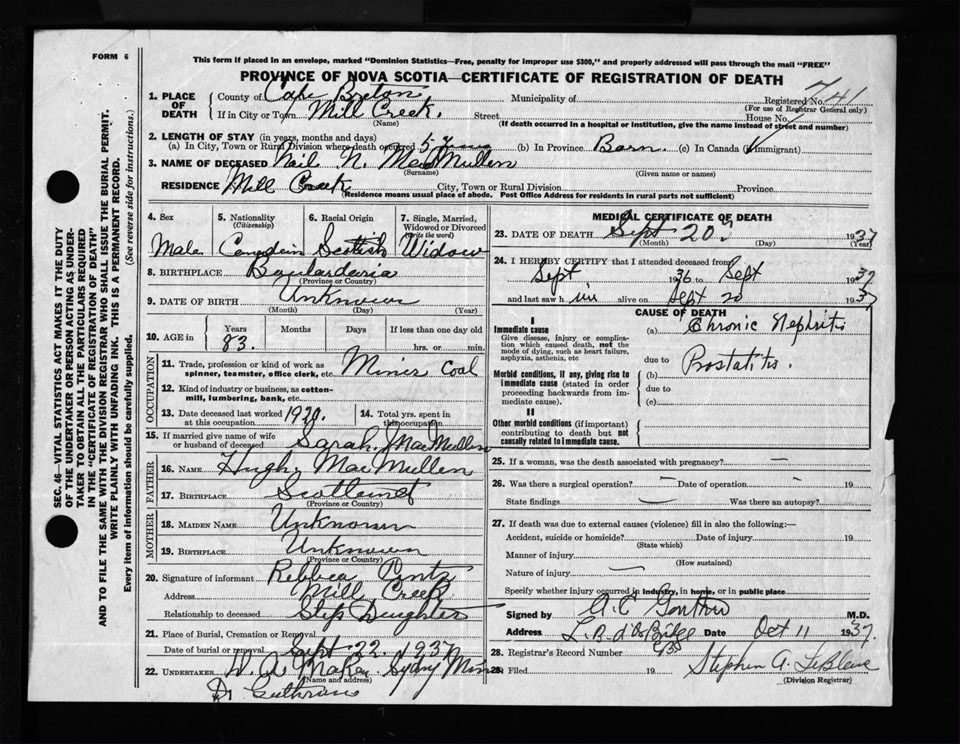 FORM 6
This form if placed in an envelope, marked "Dominion Statistics—Free, penalty for improper use $300," and properly addressed will pass through the mail "FREE"
PROVINCE OF NOVA SCOTIA—CERTIFICATE OF REGISTRATION OF DEATH
741
1. PLACE OF DEATH
County of Cape Breton Municipality of Registered No.
(For use of Registrar General only)
If in City or Town Mill Creek. Street House No.
(Name) (If death occurred in a hospital or institution, give the name instead of street and number)
2. LENGTH OF STAY (in years, months and days)
(a) In City, Town or Rural Division where death occurred 5 (b) In Province Born. (c) In Canada (if immigrant)
3. NAME OF DECEASED Neil N. MacMullen
(Surname) (Given name or names)
RESIDENCE Mill Creek City, Town or Rural Division Province
(Residence means usual place of abode. Post Office Address for residents in rural parts not sufficient)
4. Sex 5. Nationality (Citizenship) 6. Racial Origin 7. Single, Married, Widowed or Divorced (write the word)
Male Canadein Scotish Widow
8. BIRTHPLACE Boulardaria
(Province or Country)
9. DATE OF BIRTH Unknown
(Month) (Day) (Year)
10. AGE in Years Months Days If less than one day old
83. hrs. or min.
OCCUPATION
11. Trade, profession or kind of work as spinner, teamster, office clerk, etc. Miner Coal
12. Kind of industry or business, as cotton-mill, lumbering, bank, etc.
13. Date deceased last worked at this occupation 1920. 14. Total yrs. spent in this occupation
15. If married give name of wife or husband of deceased Sarah. MacMullen
FATHER
16. NAME Hugh MacMullen
17. BIRTHPLACE Scotland
(Province or Country)
MOTHER
18. MAIDEN NAME Unknown
19. BIRTHPLACE Unknown
(Province or Country)
20. Signature of informant Rebbea
Address Mill Creek
Relationship to deceased Step Daughter
21. Place of Burial, Cremation or Removal
Date of burial or removal Sept 22. 1937
22. UNDERTAKER Sydny
(Name and address)
MEDICAL CERTIFICATE OF DEATH
23. DATE OF DEATH Sept 20 1937
(Month) (Day) (Year)
24. I HEREBY CERTIFY that I attended deceased from
Sept 1936 to Sept 1937
and last saw him alive on Sept 20 1937
CAUSE OF DEATH
I
Immediate cause (a) Chronic Nephritis
Give disease, injury or complication which caused death, not the mode of dying, such as heart failure, asphyxia, asthenia, etc
due to Prostatitis.
Morbid conditions, if any, giving rise to immediate cause (stated in order proceeding backwards from immediate cause).
(b)
due to
(c)
II
Other morbid conditions (if important) contributing to death but not causally related to immediate cause.
25. If a woman, was the death associated with pregnancy? —
26. Was there a surgical operation? — Date of operation — 19
State findings — Was there an autopsy?
27. If death was due to external causes (violence) fill in also the following:—
Accident, suicide or homicide? Date of injury 19
(State which)
Manner of injury
(How sustained)
Nature of injury —
Specify whether injury occurred in industry, in home, or in public place
Signed by A. C. M.D.
Address Date Oct 11 1937.
28. Registrar's Record Number
Filed 19 Stephen A. LeBlanc
(Division Registrar)
SEC. 46—VITAL STATISTICS ACT MAKES IT THE DUTY
OF THE UNDERTAKER OR PERSON ACTING AS UNDER-
TAKER TO OBTAIN ALL THE PARTICULARS REQUIRED
IN THE "CERTIFICATE OF REGISTRATION OF DEATH"
AND TO FILE THE SAME WITH THE DIVISION REGISTRAR WHO SHALL ISSUE THE BURIAL PERMIT.
WRITE PLAINLY WITH UNFADING INK. THIS IS A PERMANENT RECORD.
Every item of information should be carefully supplied. (See reverse side for instructions.)